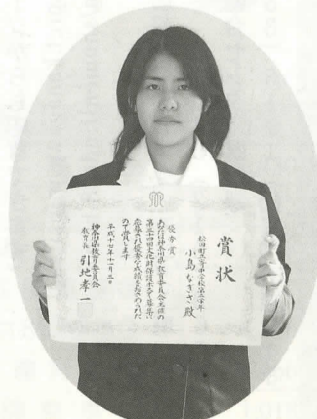 賞状
松田町立寄中学校第三学年
小島なぎさ殿
優秀賞
あなたは神奈川県教育委員会主催の
第三十四回文化財保護ポスター募集に
応募され優秀な成績をおさめられた
ので賞します
平成十七年十二月三日
神奈川県教育委員会
教育長 引地孝一